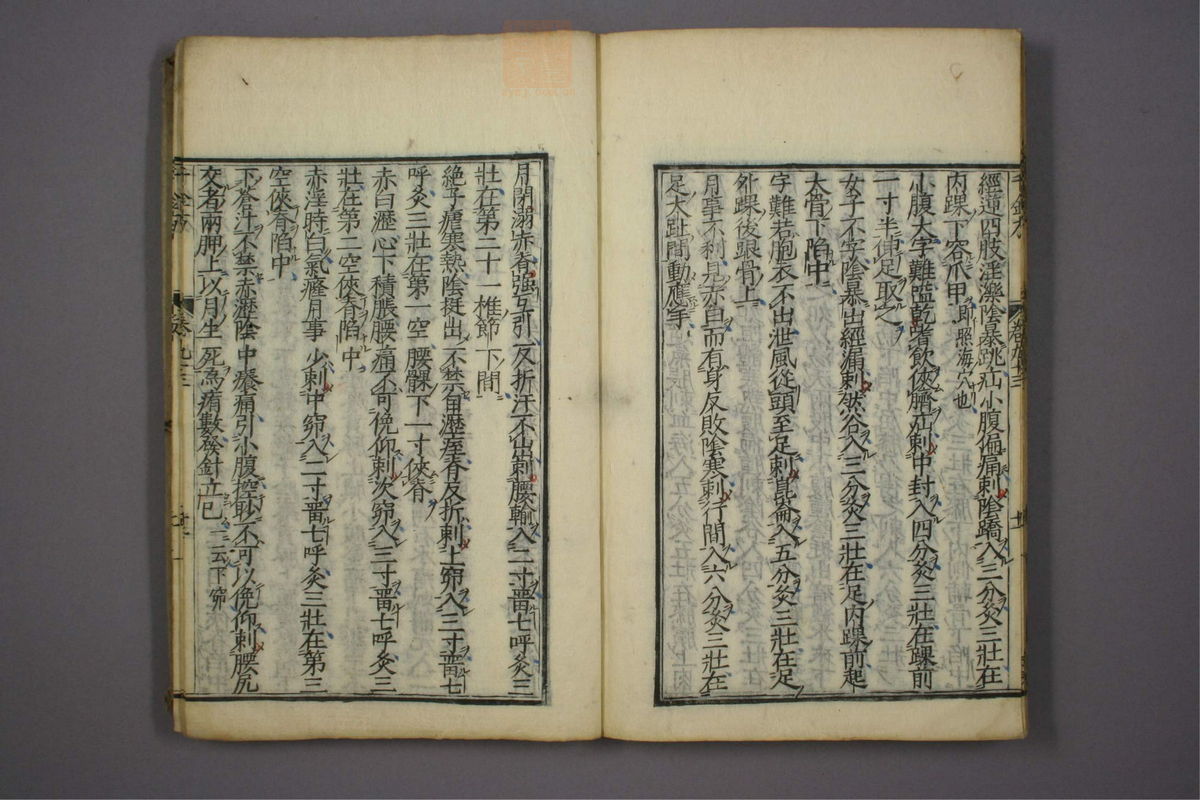 經遺四肢淫濼陰暴跳疝小腹偏痛刺陰蹻入三分灸三壯在
内踝下容爪甲即照海穴也
小腹大字難嗌乾嗜飲俠臍疝刺中封入四分灸三壯在踝前
一寸半伸足取之
女子不字陰暴出經漏刺然谷入三分灸三壯在足内踝前起
大骨下陷中
字難若胞衣不出泄風從頭至足刺崑崙入五分灸三壯在足
外踝後跟骨上
月事不利見赤白而有身反敗陰寒刺行間入六分灸三壯在
足大趾間動應手
月閉溺赤脊強互引反折汗不出刺腰輸入二寸畱七呼灸三
壯在第二十一椎節下間
絶子瘧寒熱陰挺出不禁白瀝痓脊反折刺上窌入三寸畱七
呼灸三壯在第一空腰髁下一寸俠脊
赤白瀝心下積脹腰痛不可俛仰刺次窌入三寸畱七呼灸三
壯在第二空俠脊陷中
赤淫時白氣癃月事少刺中窌入二寸畱七呼灸三壯在第三
空俠脊陷中
下蒼汁不禁赤瀝陰中癢痛引小腹控䏚不可以俛仰刺腰尻
交者兩胂上以月生死爲痏數發針立已一云下窌